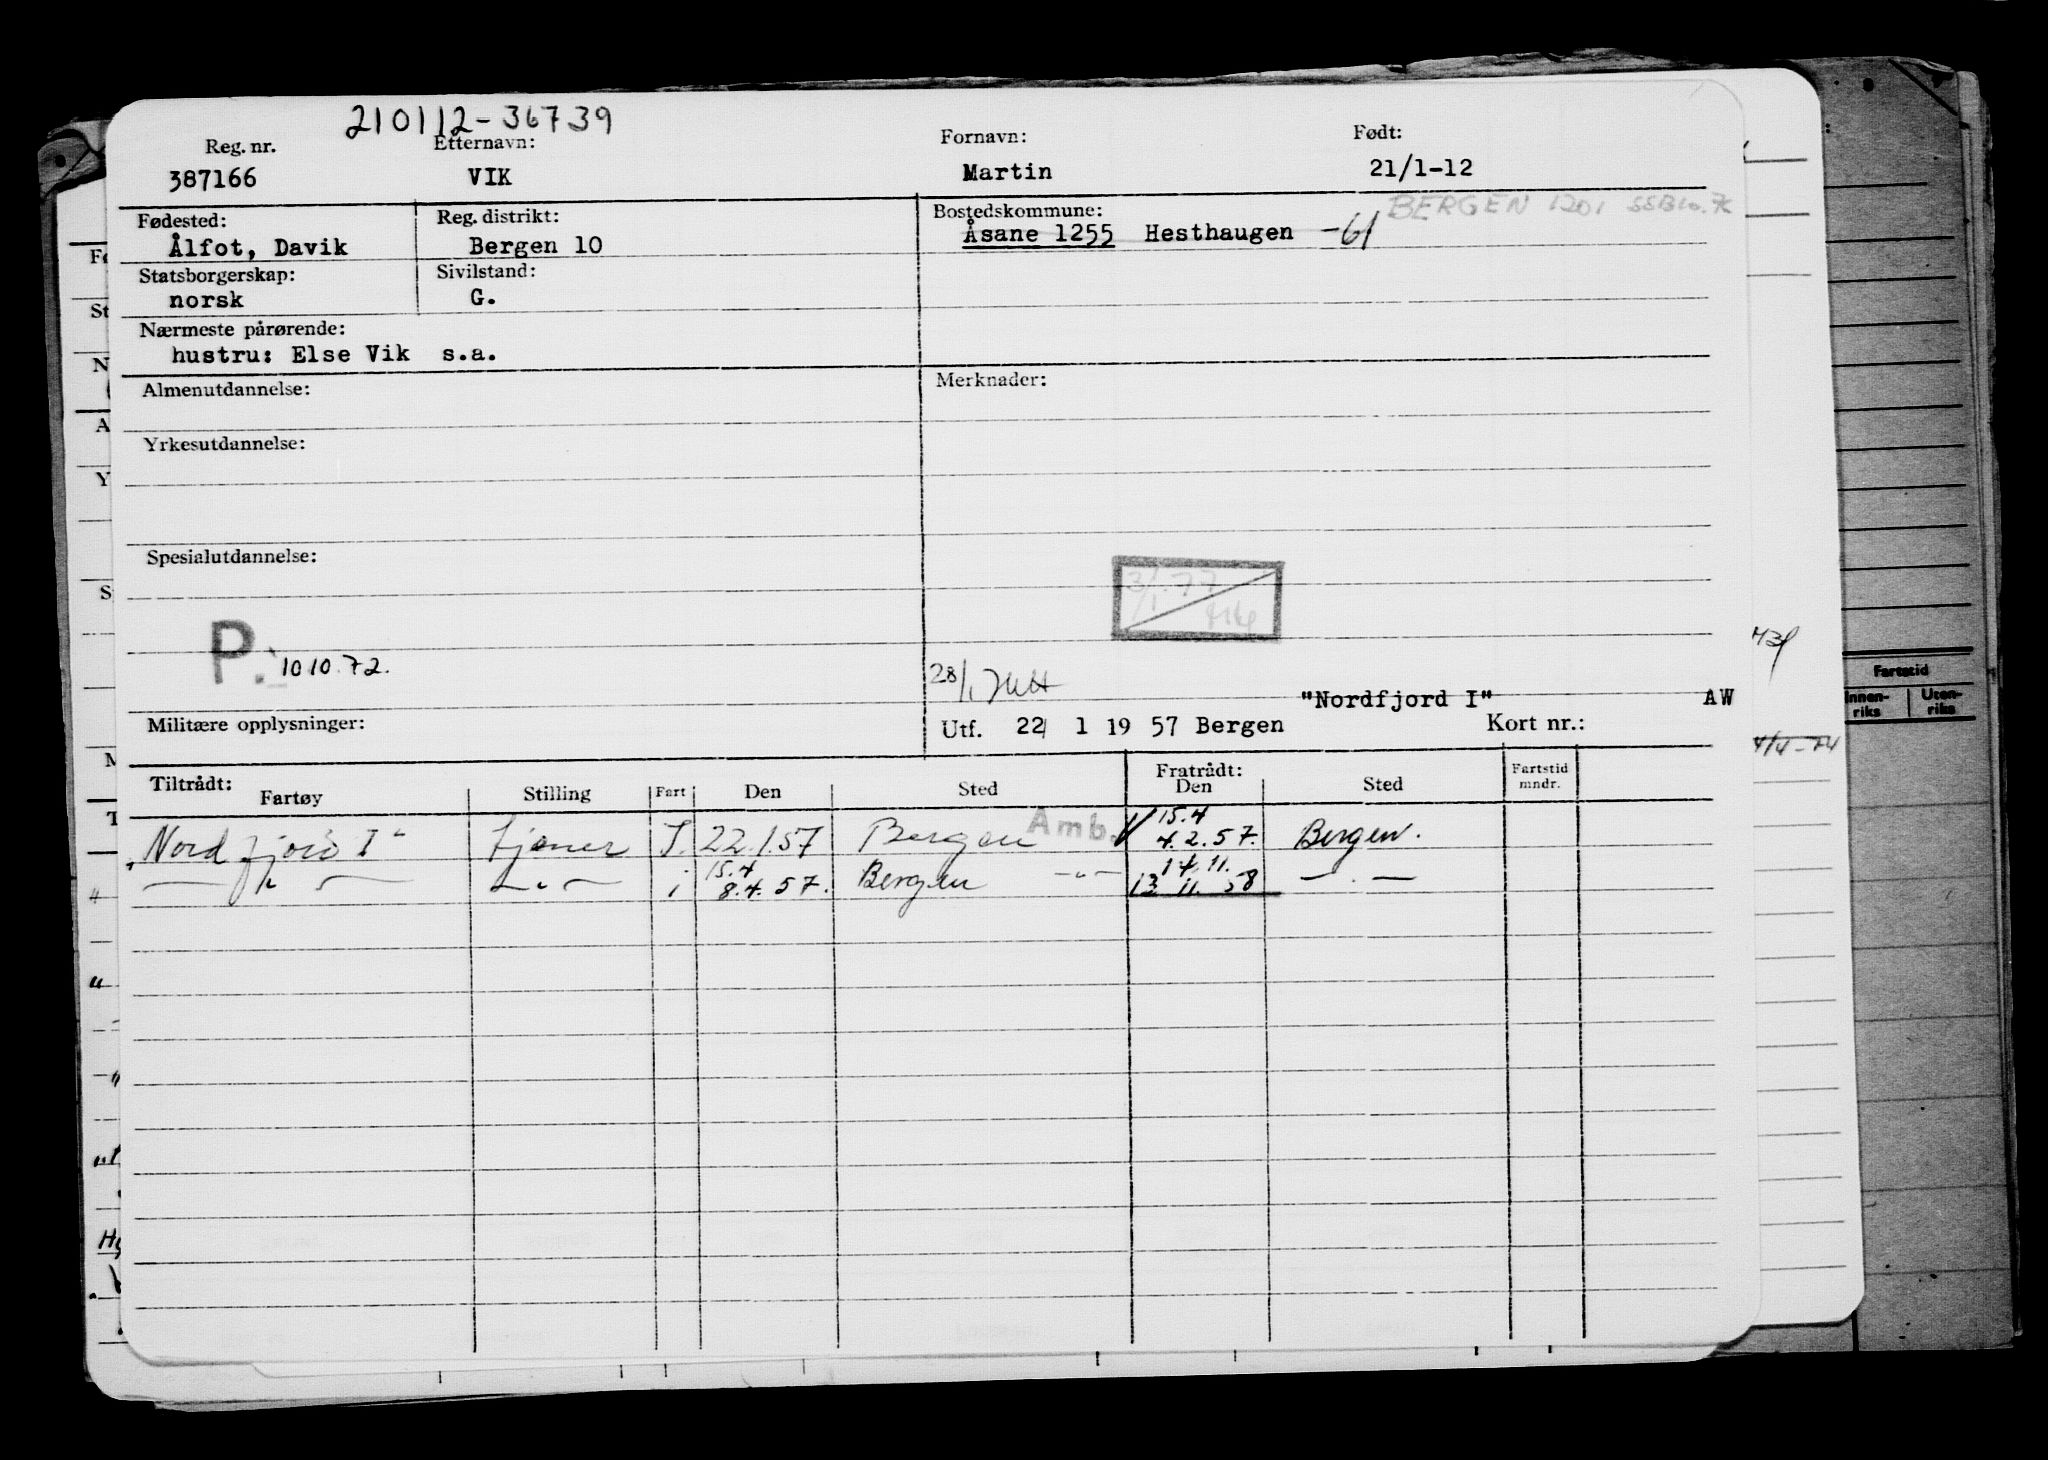 210112-36739
Reg. nr. Etternavn: Fornavn: Født:
387166 VIK Martin 21/1-12
Fødested: Reg. distrikt: Bostedskommune: BERGEN 1201
Ålfot, Davik Bergen 10 Åsane 1255 Hesthaugen -61
Statsborgerskap: Sivilstand:
norsk G.
Nærmeste pårørende:
hustru: Else Vik s.a.
Almenutdannelse: Merknader:
Yrkesutdannelse:
Spesialutdannelse:
3/1.77
P. 10 10.72.
28/1
"Nordfjord I" AW
Militære opplysninger: Utf. 22/ 1 19 57 Bergen Kort nr.:
Tiltrådt: Fratrådt: Fartstid
Fartøy Stilling Fart Den Sted Den Sted mndr.
15.4
„Nordfjord I" I. 22.1.57 Bergen Amb. 4.2.57. Bergen.
15.4 14.11.
— " — — " — i 8.4.57. Bergen — " — 13.11.58 — . —
Fartstid
Innen-
riks
Uten-
riks